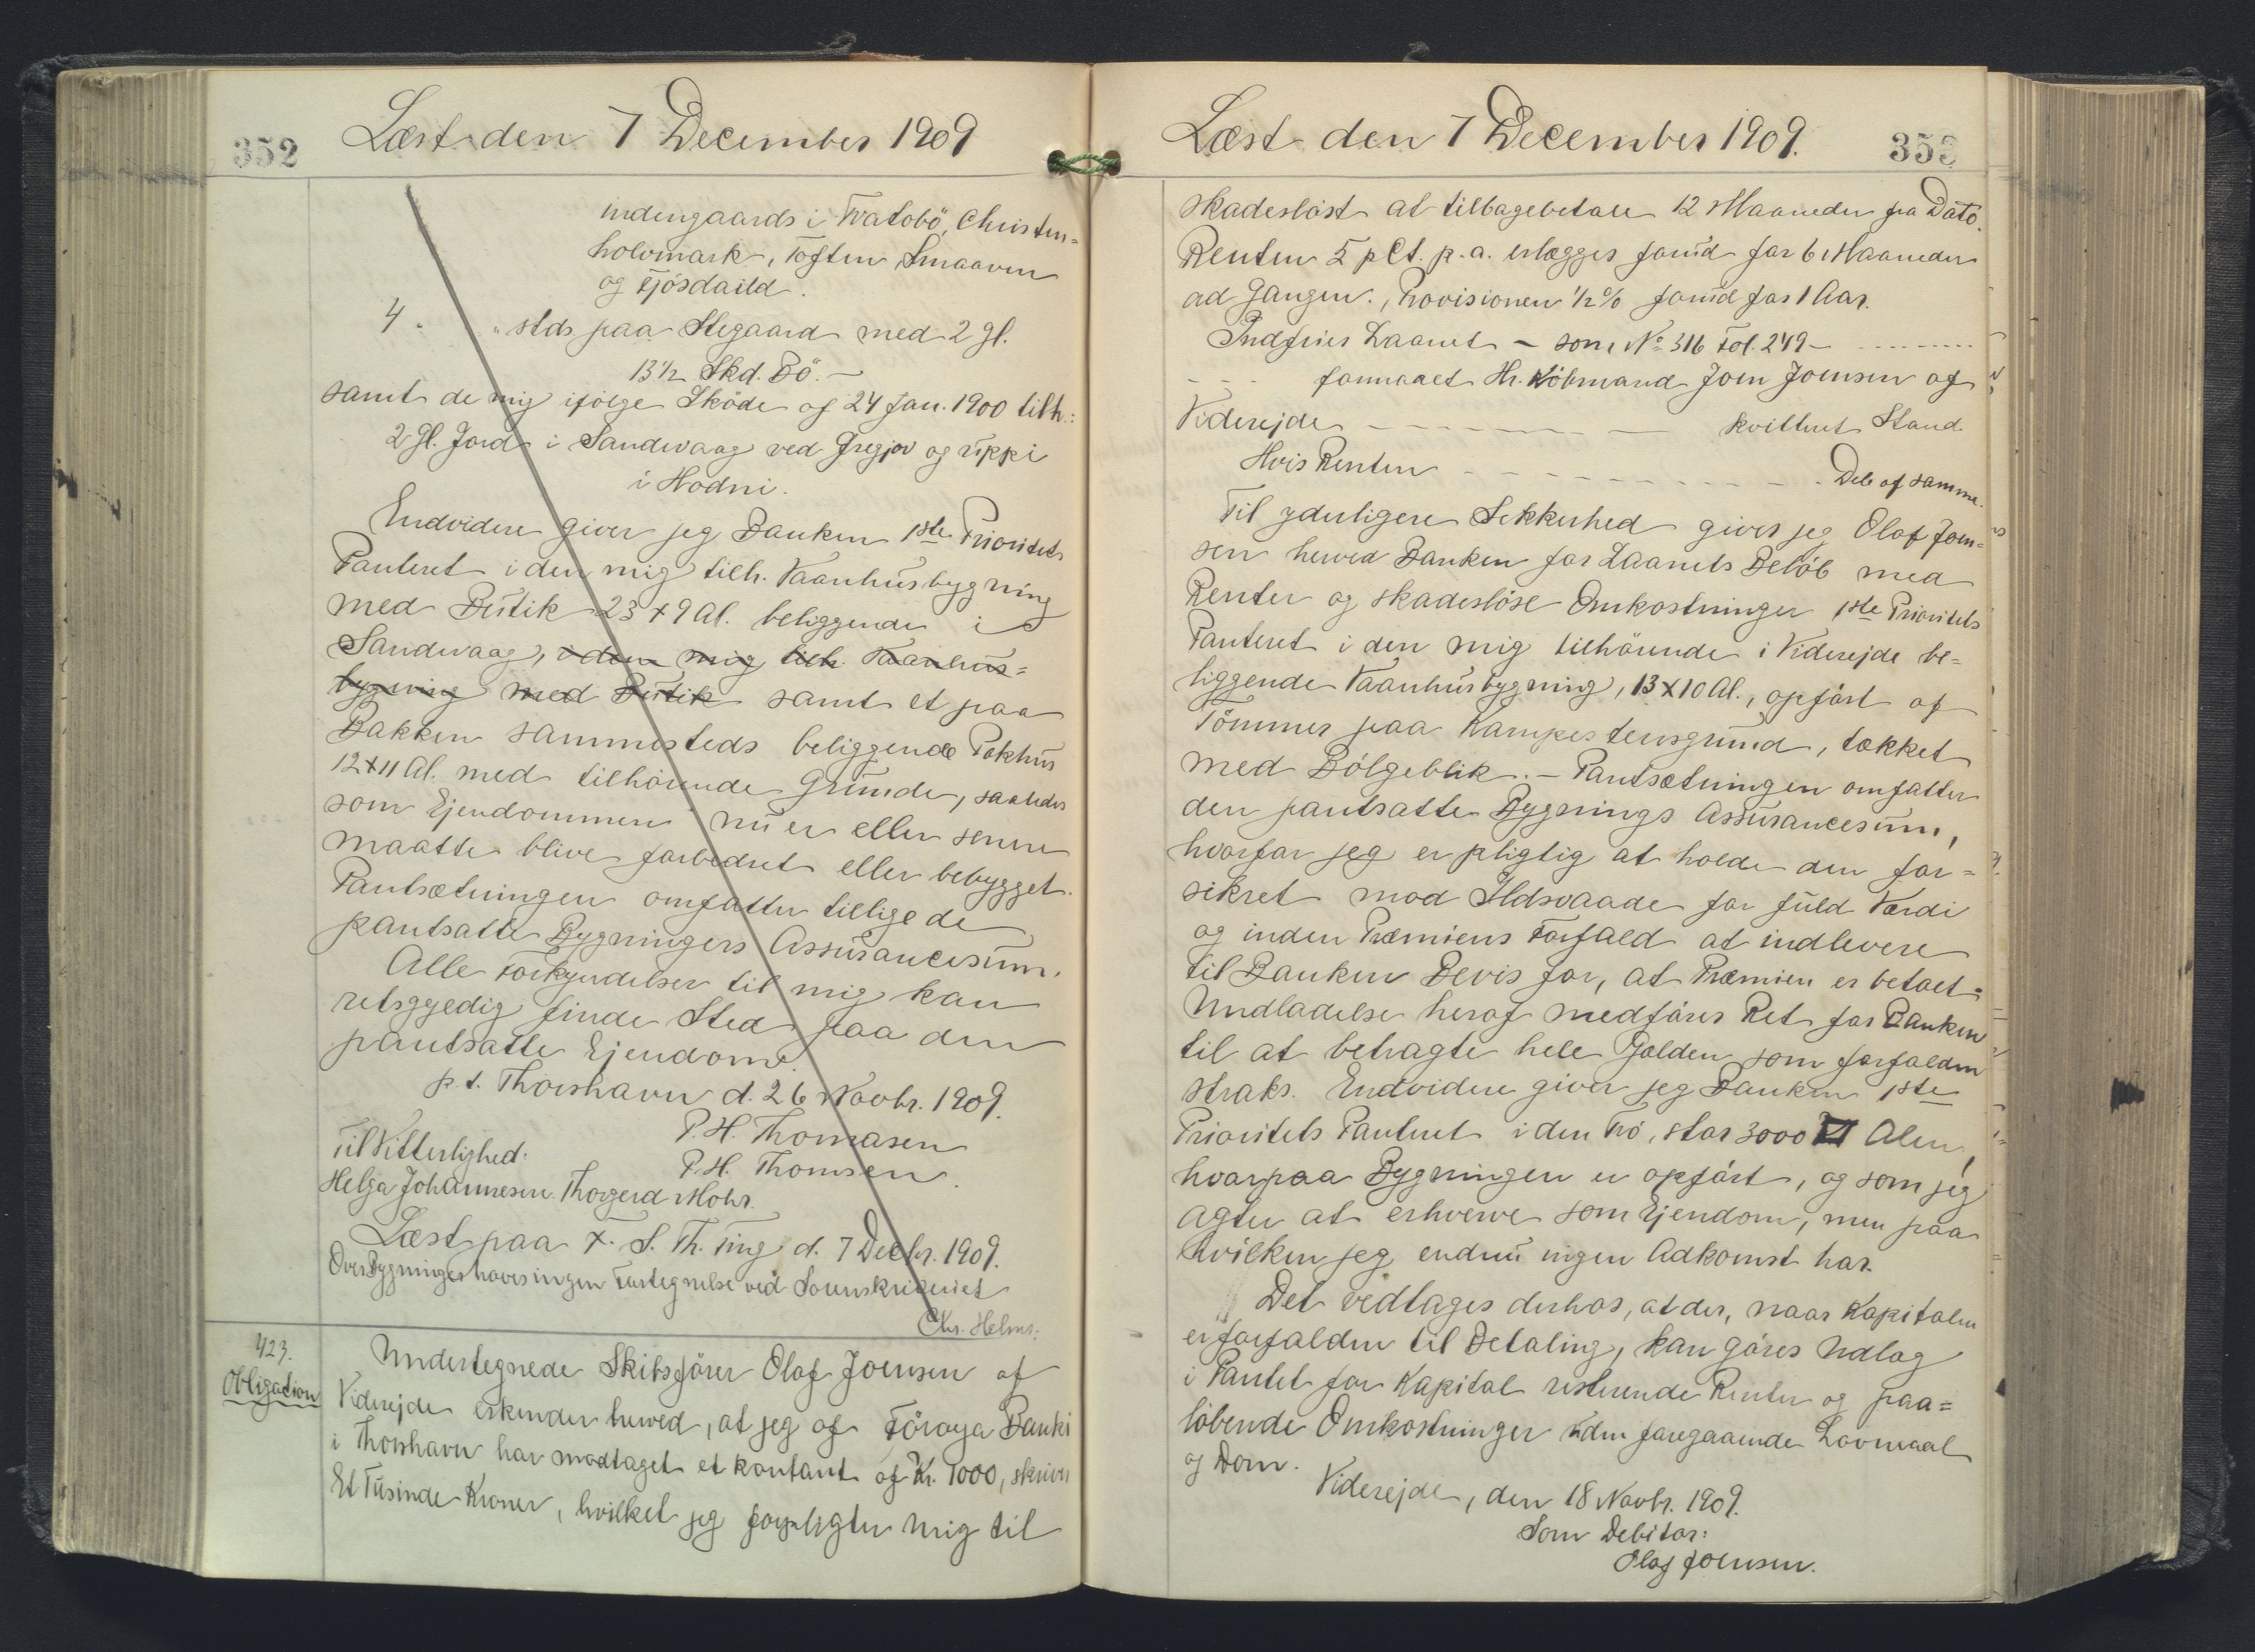 352
Læst den 7 December 1909
indengaards i Tvatobö, Christen=
holvmark, Toften Smaaven
og Fjósdaild.
4 " " stds paa Stegaard med 2 Gl.
13½ Skd. Bö. —
samt de mig ifölge Sköde af 24 Jan. 1900 tilh.:
2 Gl. Jord i Sandevaag ved Gregjov og uppi
i Hodni.
Endvidere giver jeg Banken 1ste Prioritets
Panteret i den mig tilh. Vaanhusbygning
med Butik 23 x 9 Al. beliggende i
Sandevaag, i den mig tilh. Vaanhus=
bygning med Butik samt et paa
Bakken sammesteds beliggende Pakhus
12 x 11 Al. med tilhörende Grunde, saaledes
som Ejendommen nu er eller senere
maatte blive forbedret eller bebygget.
Pantsætningen omfatter tillige de
pantsatte Bygningers Assurancesum.
Alle Forkyndelser til mig kan
retsgyldig finde Sted paa den
pantsatte Ejendom.
p.t. Thorshavn d. 26 Novbr. 1909.
P. H. Thomasen
Til Vitterlighed: P. H. Thomsen.
Helga Johannesen. Thorgerd Mohr.
Læst paa F. S. Th. Ting d. 7 Decbr. 1909.
Over Bygninger haves ingen Fortegnelse ved Sorenskriveriet
Chr. Helms.
423.
Obligation
Undertegnede Skibsförer Olaf Joensen af
Viderejde erkender herved, at jeg af Föroya Banki
i Thorshavn har modtaget et kontant af Kr. 1000, skriver
Et Tusinde Kroner, hvilket jeg forpligter mig til
Læst den 7 December 1909.
353
skadeslöst at tilbagebetale 12 Maaneder fra Dato.
Renten 5 pCt. p.a. erlægges forud for 6 Maaneder
ad Gangen., Provisionen ½ % forud for 1 Aar.
Indfries Laanet – som No 316 Fol. 249 – ---------
- - - formaaet Hr. Köbmand Joen Joensen af
Viderejde - - - - - - - - kvitteret Stand.
Hvis Renten - - - - - - - - - Del af samme.
Til yderligere Sikkerhed giver jeg Olaf Joen=
sen herved Banken for Laanets Belöb med
Renter og skadeslöse Omkostninger 1ste Prioritets
Panteret i den mig tilhörende i Viderejde be=
liggende Vaanhusbygning, 13 x 10 Al., opfört af
Tömmer paa Kampestensgrund, tækket
med Bölgeblik. – Pantsætningen omfatter
den pantsatte Bygnings Assurancesum,
hvorfor jeg er pligtig at holde den for=
sikret mod Ildsvaade for fuld Værdi
og inden Præmiens Forfald at indlevere
til Banken Bevis for, at Præmien er betalt.
Undladelse heraf medförer Ret for Banken
til at betragte hele Gælden som forfalden
straks. Endvidere giver jeg Banken 1ste
Prioritets Panteret i den Trö, stor 3000 □ Alen,
hvorpaa Bygningen er opfört, og som jeg
agter at erhverve som Ejendom, men paa
hvilken jeg endnu ingen Adkomst har.
Det vedtages derhos, at der, naar Kapitalen
er forfalden til Betaling, kan göres Udlæg
i Pantet for Kapital resterende Renter og paa=
löbende Omkostninger uden foregaaende Lovmaal
og Dom.
Viderejde, den 18 Novbr. 1909.
Som Debitor:
Olaf Joensen.